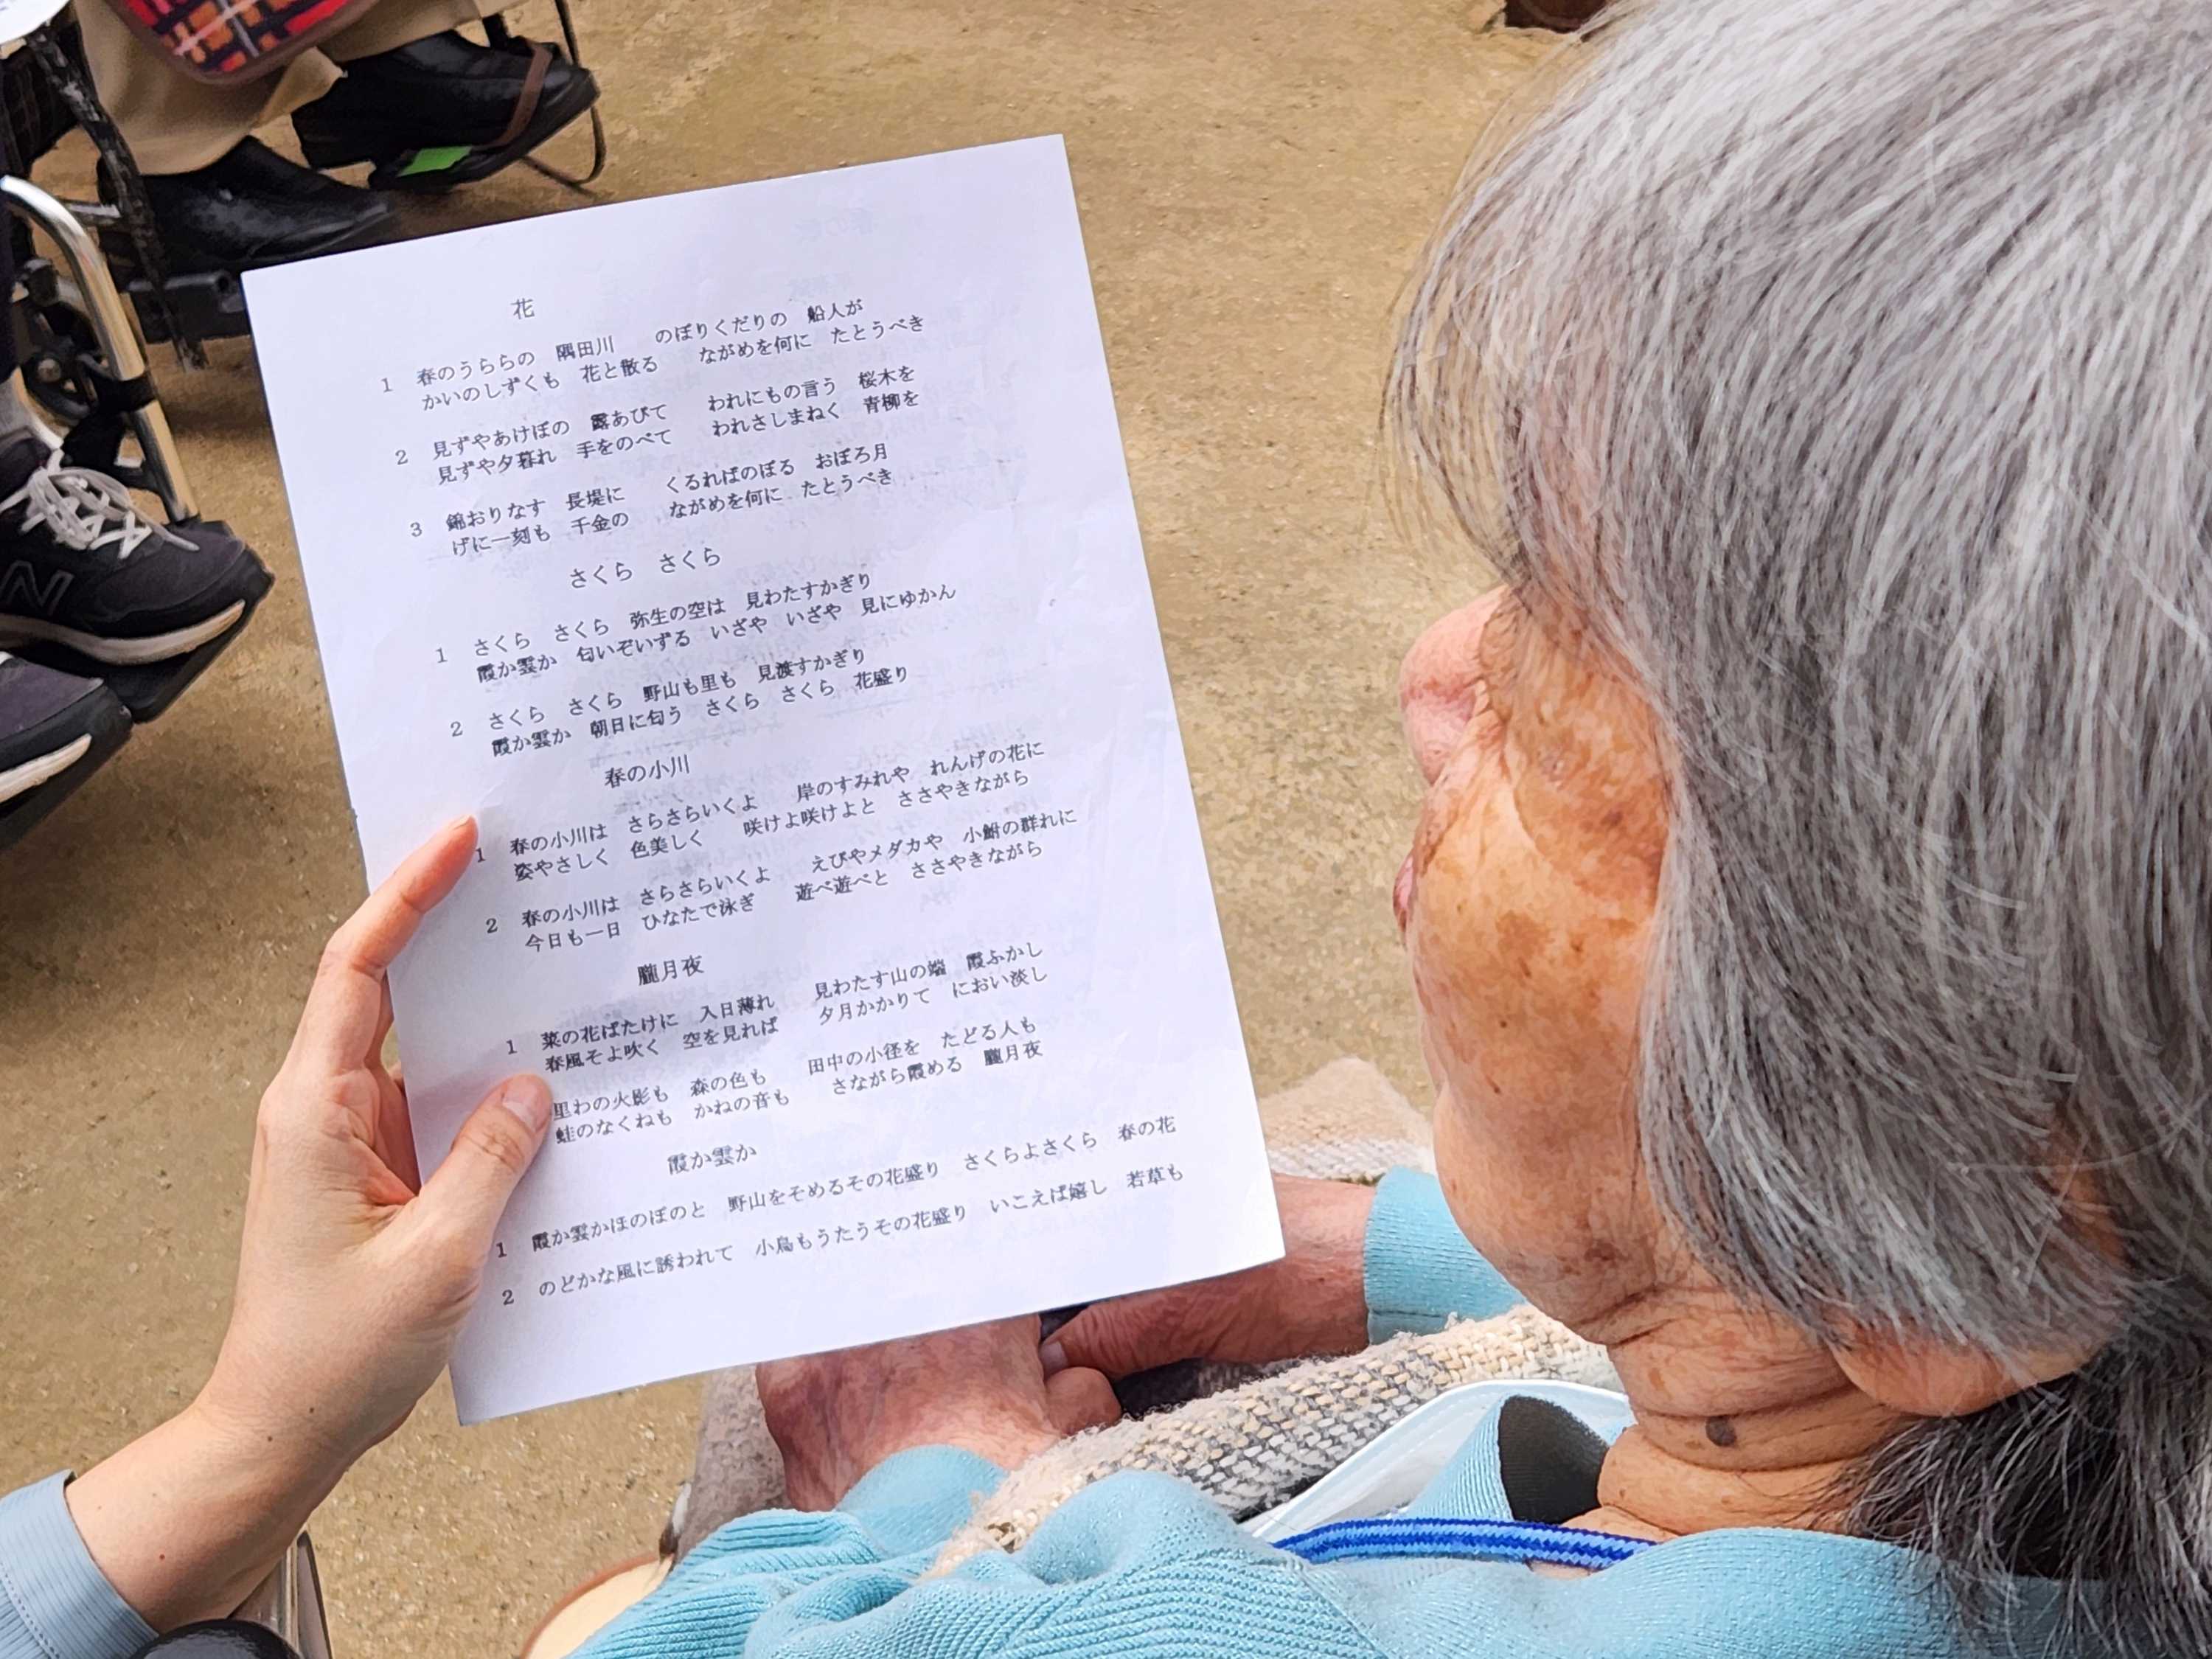 花
1 春のうららの 隅田川 のぼりくだりの 船人が
かいのしずくも 花と散る ながめを何に たとうべき
2 見ずやあけぼの 露あびて われにもの言う 桜木を
見ずや夕暮れ 手をのべて われさしまねく 青柳を
3 錦おりなす 長堤に くるればのぼる おぼろ月
げに一刻も 千金の ながめを何に たとうべき
さくら さくら
1 さくら さくら 弥生の空は 見わたすかぎり
霞か雲か 匂いぞいずる いざや いざや 見にゆかん
2 さくら さくら 野山も里も 見渡すかぎり
霞か雲か 朝日に匂う さくら さくら 花盛り
春の小川
1 春の小川は さらさらいくよ 岸のすみれや れんげの花に
姿やさしく 色美しく 咲けよ咲けよと ささやきながら
2 春の小川は さらさらいくよ えびやメダカや 小鮒の群れに
今日も一日 ひなたで泳ぎ 遊べ遊べと ささやきながら
朧月夜
1 菜の花ばたけに 入日薄れ 見わたす山の端 霞ふかし
春風そよ吹く 空を見れば 夕月かかりて におい淡し
里わの火影も 森の色も 田中の小径を たどる人も
蛙のなくねも かねの音も さながら霞める 朧月夜
霞か雲か
1 霞か雲かほのぼのと 野山をそめるその花盛り さくらよさくら 春の花
2 のどかな風に誘われて 小鳥もうたうその花盛り いこえば嬉し 若草も
N